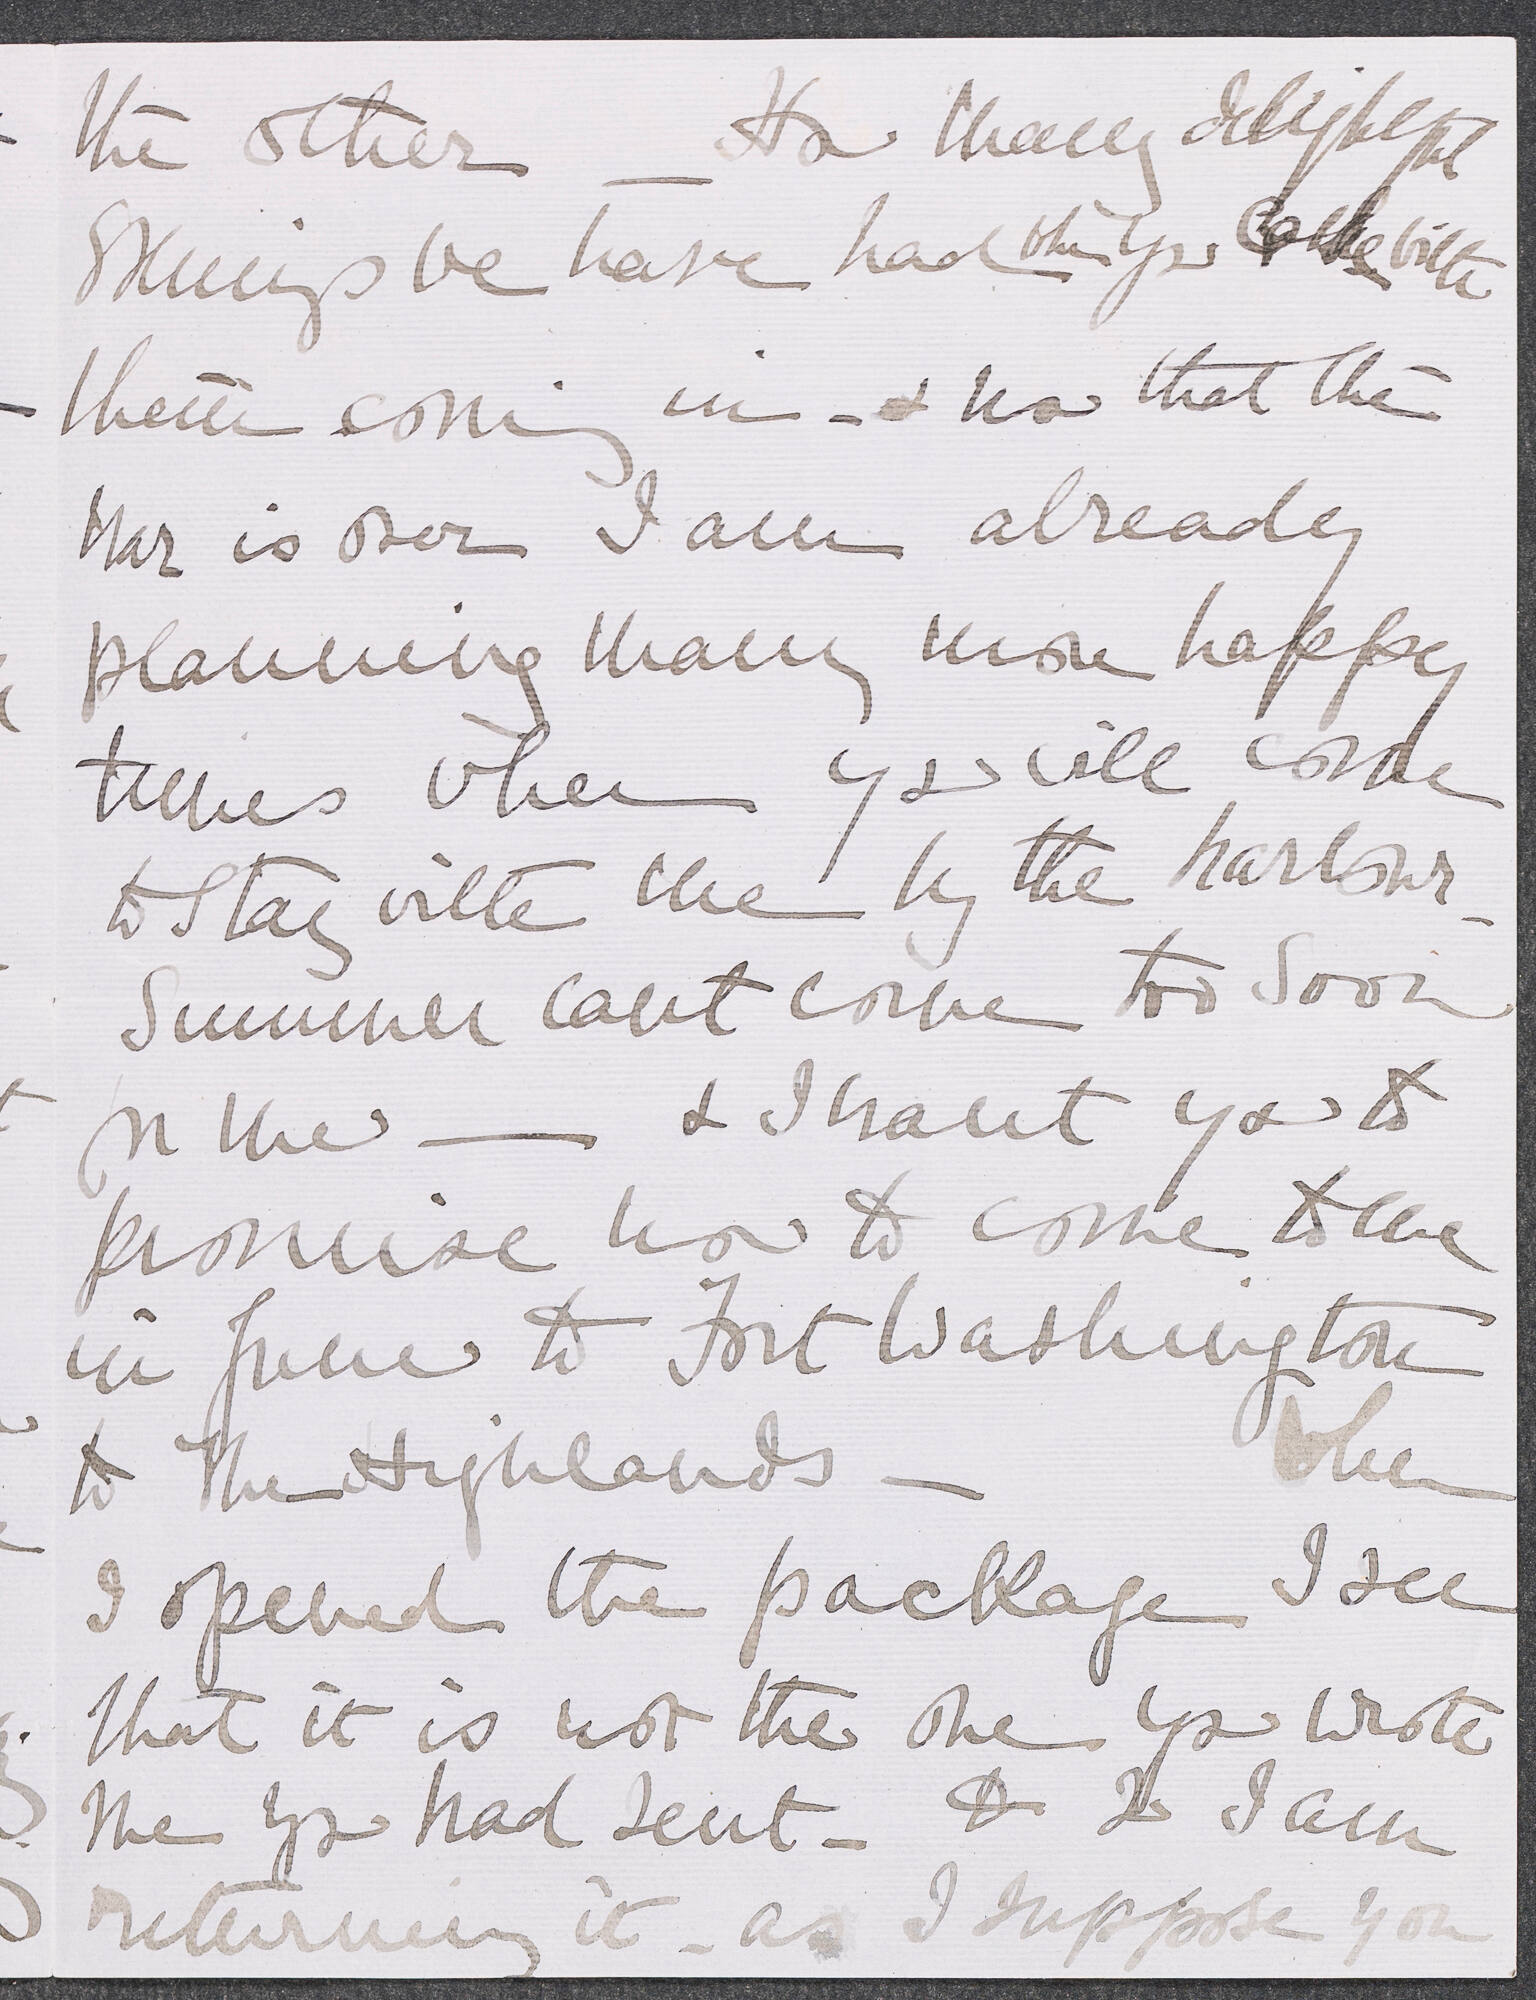 the other — How many delightful
evenings we have had when you came with
them coming in - & now that the
War is over I am already
planning many more happy
times when you will come
to stay with me by the harbour -
Summer cant come too soon
for me — & I want you to
promise now to come to me
in June to Fort Washington
to The Highlands — When
I opened the package I see
that it is not the one you wrote
me you had sent - & so I am
returning it - as I suppose you